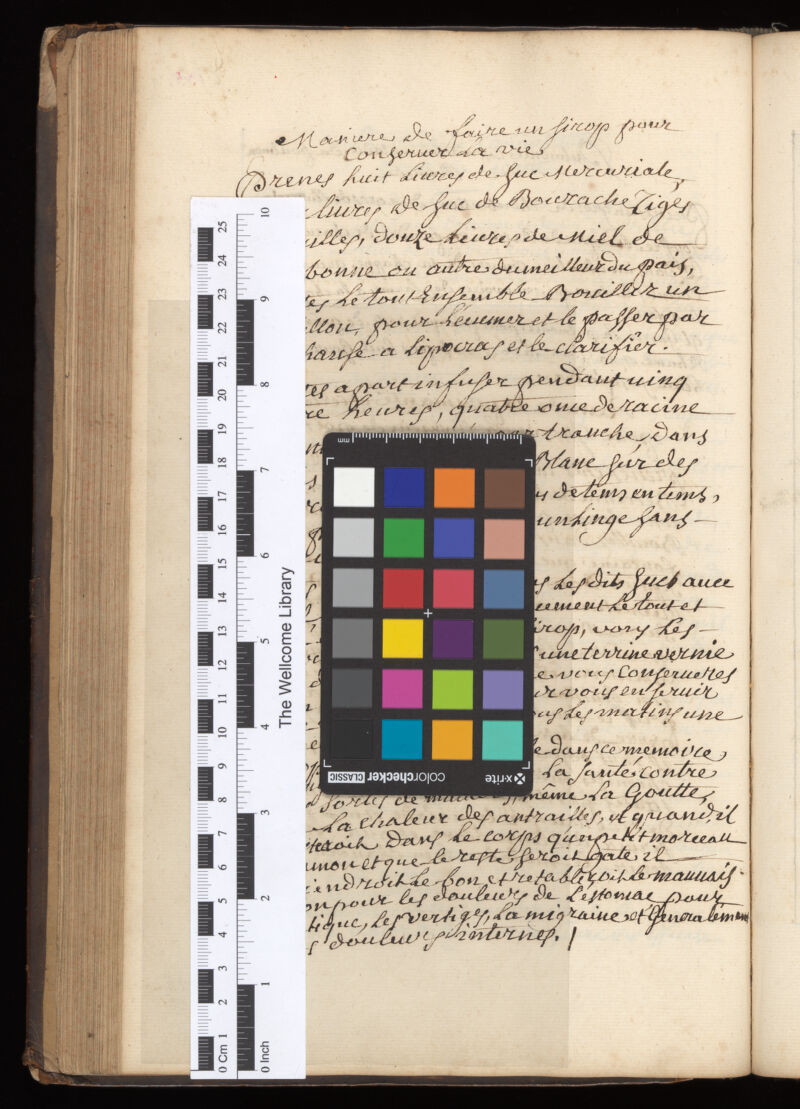 Maniere de faire un sirop pour
Conseruer La vie
Prenes huit Liures de suc Mercuriale,
liures de suc de Bourache Tiges
illes, douze Liures de Miel de
bonne ou autre du meilleur du païs,
es Le tout Ensemble Bouillir un
llon, pour L'ecumer et le passer par
hausse a Lipocras et le clarifier.
es a part infuser pendant uing
re heures, quatre once de racine
par tranche, dans
Blanc sur des
de tems en tems,
un Linge sans
Les dits sucs auec
ement Le tout et
irop, vous Les
une terrine vernie
vous Conserueres
vous en seruir
Les matins une
dans ce memoire
La santé contre
sortes de même La Goutte,
La chaleur des antrailles, et quand il
roit dans Le corps qu'un petit morceau
mon et que le reste seroit gaté il
iendroit Le bon et retabliroit Le mauuais
on pour les douleurs de L'estomac pour
tique, Les vertiges, La migraine et Generalement
s douleurs internes.
The Wellcome Library
0 Cm 1 2 3 4 5 6 7 8 9 10 11 12 13 14 15 16 17 18 19 20 21 22 23 24 25
0 Inch 1 2 3 4 5 6 7 8 9 10
mm
x-rite colorchecker CLASSIC